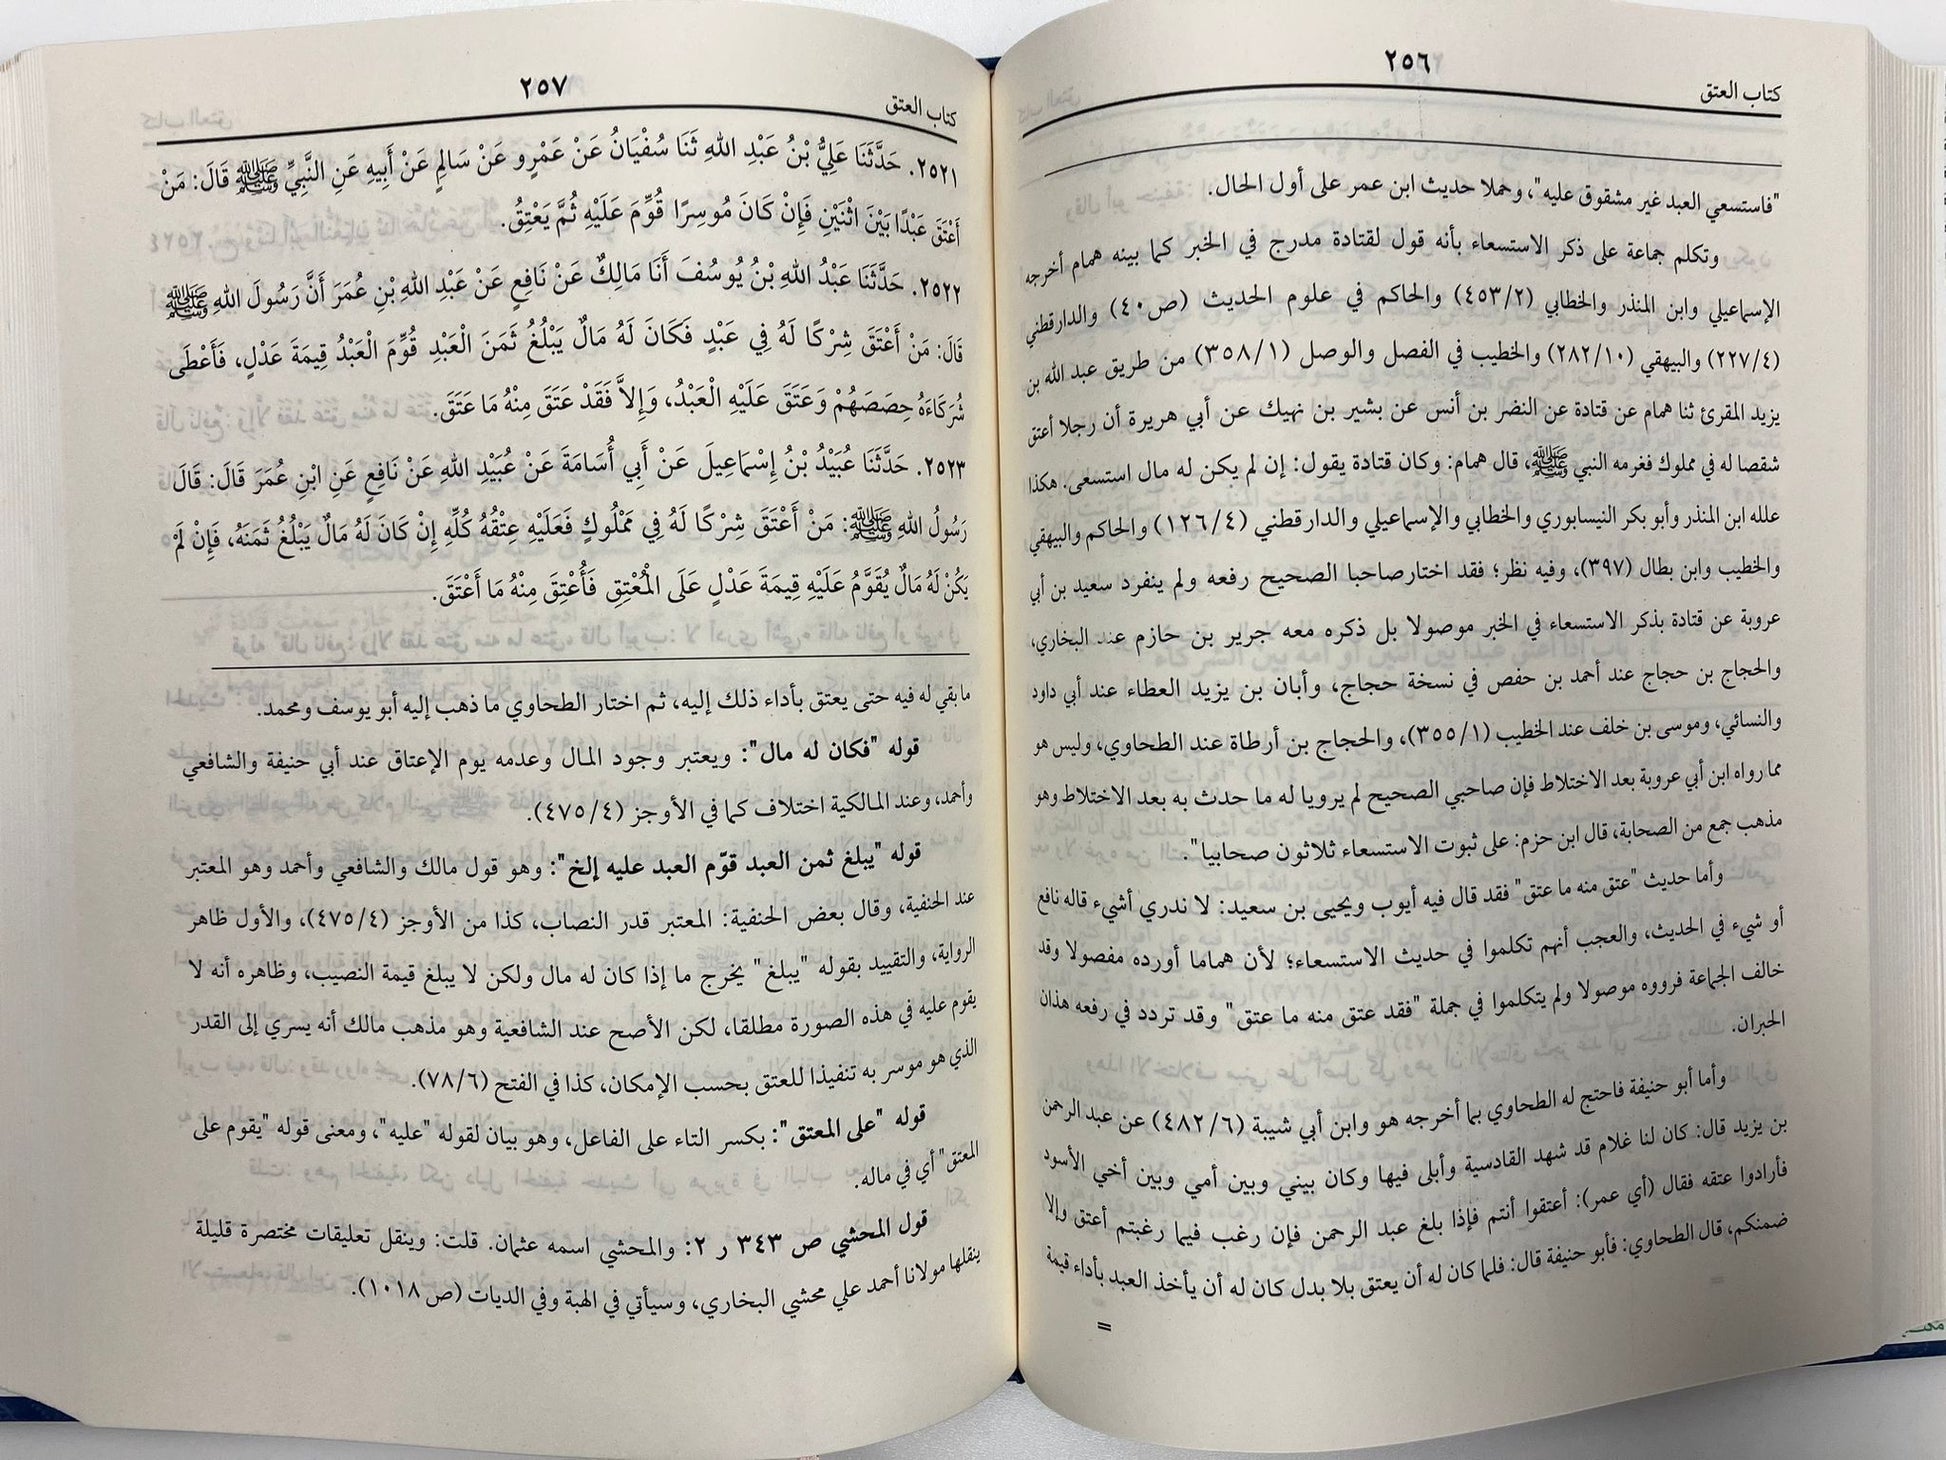 كتاب العتق
٢٥٦
"فاستسعي العبد غير مشقوق عليه"، وحملا حديث ابن عمر على أول الحال.
وتكلم جماعة على ذكر الاستسعاء بأنه قول لقتادة مدرج في الخبر كما بينه همام أخرجه
الإسماعيلي وابن المنذر والخطابي (٤٥٣/٢) والحاكم في علوم الحديث (ص٤٠) والدارقطني
(٢٢٧/٤) والبيهقي (٢٨٢/١٠) والخطيب في الفصل والوصل (٣٥٨/١) من طريق عبد الله بن
يزيد المقرئ ثنا همام عن قتادة عن النضر بن أنس عن بشير بن نهيك عن أبي هريرة أن رجلا أعتق
شقصا له في مملوك فغرمه النبي ﷺ، قال همام: وكان قتادة يقول: إن لم يكن له مال استسعى. هكذا
علله ابن المنذر وأبو بكر النيسابوري والخطابي والإسماعيلي والدارقطني (١٢٦/٤) والحاكم والبيهقي
والخطيب وابن بطال (٣٩٧)، وفيه نظر؛ فقد اختارصاحبا الصحيح رفعه ولم ينفرد سعيد بن أبي
عروبة عن قتادة بذكر الاستسعاء في الخبر موصولا بل ذكره معه جرير بن حازم عند البخاري،
والحجاج بن حجاج عند أحمد بن حفص في نسخة حجاج، وأبان بن يزيد العطاء عند أبي داود
والنسائي، وموسى بن خلف عند الخطيب (٣٥٥/١)، والحجاج بن أرطاة عند الطحاوي، وليس هو
مما رواه ابن أبي عروبة بعد الاختلاط فإن صاحبي الصحيح لم يرويا له ما حدث به بعد الاختلاط وهو
مذهب جمع من الصحابة، قال ابن حزم: على ثبوت الاستسعاء ثلاثون صحابيا".
وأما حديث "عتق منه ما عتق" فقد قال فيه أيوب ويحيى بن سعيد: لا ندري أشيء قاله نافع
أو شيء في الحديث، والعجب أنهم تكلموا في حديث الاستسعاء؛ لأن هماما أورده مفصولا وقد
خالف الجماعة فرووه موصولا ولم يتكلموا في جملة "فقد عتق منه ما عتق" وقد تردد في رفعه هذان
الحبران.
وأما أبو حنيفة فاحتج له الطحاوي بما أخرجه هو وابن أبي شيبة (٤٨٢/٦) عن عبد الرحمن
بن يزيد قال: كان لنا غلام قد شهد القادسية وأبلى فيها وكان بيني وبين أمي وبين أخي الأسود
فأرادوا عتقه فقال (أي عمر): أعتقوا أنتم فإذا بلغ عبد الرحمن فإن رغب فيما رغبتم أعتق وإلا
ضمنكم، قال الطحاوي: فأبو حنيفة قال: فلما كان له أن يعتق بلا بدل كان له أن يأخذ العبد بأداء قيمة
=
كتاب العتق
٢٥٧
٢٥٢١. حَدَّثَنَا عَلِيُّ بْنُ عَبْدِ اللهِ ثَنَا سُفْيَانُ عَنْ عَمْرٍو عَنْ سَالِمٍ عَنْ أَبِيهِ عَنِ النَّبِيِّ ﷺ قَالَ: مَنْ
أَعْتَقَ عَبْدًا بَيْنَ اثْنَيْنِ فَإِنْ كَانَ مُوسِرًا قُوِّمَ عَلَيْهِ ثُمَّ يَعْتِقُ.
٢٥٢٢. حَدَّثَنَا عَبْدُ اللهِ بْنُ يُوسُفَ أَنَا مَالِكٌ عَنْ نَافِعٍ عَنْ عَبْدِ اللهِ بْنِ عُمَرَ أَنَّ رَسُولَ اللهِ ﷺ
قَالَ: مَنْ أَعْتَقَ شِرْكًا لَهُ فِي عَبْدٍ فَكَانَ لَهُ مَالٌ يَبْلُغُ ثَمَنَ الْعَبْدِ قُوِّمَ الْعَبْدُ قِيمَةَ عَدْلٍ، فَأَعْطَى
شُرَكَاءَهُ حِصَصَهُمْ وَعَتَقَ عَلَيْهِ الْعَبْدُ، وَإِلاَّ فَقَدْ عَتَقَ مِنْهُ مَا عَتَقَ.
٢٥٢٣. حَدَّثَنَا عُبَيْدُ بْنُ إِسْمَاعِيلَ عَنْ أَبِي أُسَامَةَ عَنْ عُبَيْدِ اللهِ عَنْ نَافِعٍ عَنِ ابْنِ عُمَرَ قَالَ: قَالَ
رَسُولُ اللهِ ﷺ: مَنْ أَعْتَقَ شِرْكًا لَهُ فِي مَمْلُوكٍ فَعَلَيْهِ عِتْقُهُ كُلِّهِ إِنْ كَانَ لَهُ مَالٌ يَبْلُغُ ثَمَنَهُ، فَإِنْ لَمْ
يَكُنْ لَهُ مَالٌ يُقَوَّمُ عَلَيْهِ قِيمَةَ عَدْلٍ عَلَى الْمُعْتِقِ فَأُعْتِقَ مِنْهُ مَا أَعْتَقَ.
ما بقي له فيه حتى يعتق بأداء ذلك إليه، ثم اختار الطحاوي ما ذهب إليه أبو يوسف ومحمد.
قوله "فكان له مال": ويعتبر وجود المال وعدمه يوم الإعتاق عند أبي حنيفة والشافعي
وأحمد، وعند المالكية اختلاف كما في الأوجز (٤٧٥/٤).
قوله "يبلغ ثمن العبد قوّم العبد عليه إلخ": وهو قول مالك والشافعي وأحمد وهو المعتبر
عند الحنفية، وقال بعض الحنفية: المعتبر قدر النصاب، كذا من الأوجز (٤٧٥/٤)، والأول ظاهر
الرواية، والتقييد بقوله "يبلغ" يخرج ما إذا كان له مال ولكن لا يبلغ قيمة النصيب، وظاهره أنه لا
يقوم عليه في هذه الصورة مطلقا، لكن الأصح عند الشافعية وهو مذهب مالك أنه يسري إلى القدر
الذي هو موسر به تنفيذا للعتق بحسب الإمكان، كذا في الفتح (٧٨/٦).
قوله "على المعتق": بكسر التاء على الفاعل، وهو بيان لقوله "عليه"، ومعنى قوله "يقوم على
المعتق" أي في ماله.
قول المحشي ص ٣٤٣ ر ٢: والمحشي اسمه عثمان. قلت: وينقل تعليقات مختصرة قليلة
ينقلها مولانا أحمد علي محشي البخاري، وسيأتي في الهبة وفي الديات (ص ١٠١٨).